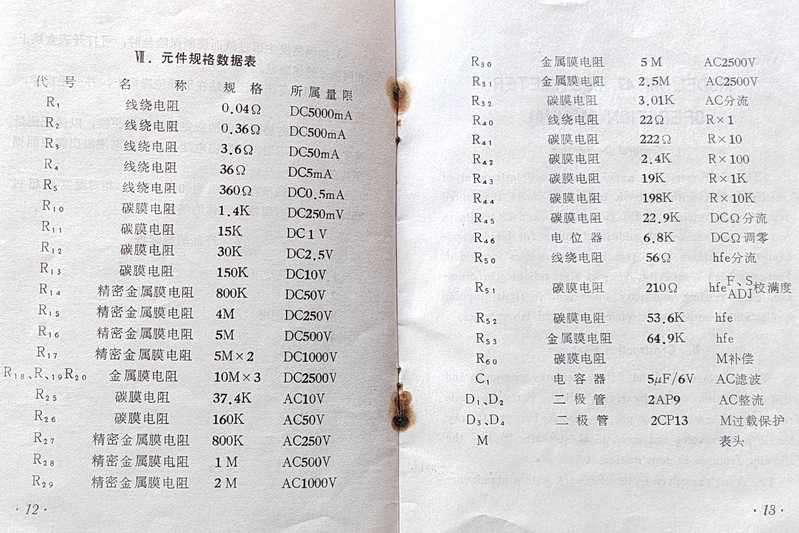 Ⅶ．元件规格数据表
代 号 名 称 规 格 所属量限
R₁ 线绕电阻 0.04Ω DC5000mA
R₂ 线绕电阻 0.36Ω DC500mA
R₃ 线绕电阻 3.6Ω DC50mA
R₄ 线绕电阻 36Ω DC5mA
R₅ 线绕电阻 360Ω DC0.5mA
R₁₀ 碳膜电阻 1.4K DC250mV
R₁₁ 碳膜电阻 15K DC1V
R₁₂ 碳膜电阻 30K DC2.5V
R₁₃ 碳膜电阻 150K DC10V
R₁₄ 精密金属膜电阻 800K DC50V
R₁₅ 精密金属膜电阻 4M DC250V
R₁₆ 精密金属膜电阻 5M DC500V
R₁₇ 精密金属膜电阻 5M×2 DC1000V
R₁₈、R、₁₉R₂₀ 金属膜电阻 10M×3 DC2500V
R₂₅ 碳膜电阻 37.4K AC10V
R₂₆ 碳膜电阻 160K AC50V
R₂₇ 精密金属膜电阻 800K AC250V
R₂₈ 精密金属膜电阻 1M AC500V
R₂₉ 精密金属膜电阻 2M AC1000V
·12·
R₃₀ 金属膜电阻 5M AC2500V
R₃₁ 金属膜电阻 2.5M AC2500V
R₃₂ 碳膜电阻 3.01K AC分流
R₄₀ 线绕电阻 22Ω R×1
R₄₁ 碳膜电阻 222Ω R×10
R₄₂ 碳膜电阻 2.4K R×100
R₄₃ 碳膜电阻 19K R×1K
R₄₄ 碳膜电阻 198K R×10K
R₄₅ 碳膜电阻 22.9K DCΩ分流
R₄₆ 电位器 6.8K DCΩ调零
R₅₀ 线绕电阻 56Ω hfe分流
R₅₁ 碳膜电阻 210Ω hfe F、S ADJ 校满度
R₅₂ 碳膜电阻 53.6K hfe
R₅₃ 金属膜电阻 64.9K hfe
R₆₀ 碳膜电阻 M补偿
C₁ 电容器 5μF/6V AC滤波
D₁、D₂ 二极管 2AP9 AC整流
D₃、D₄ 二极管 2CP13 M过载保护
M 表头
·13·